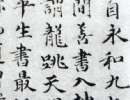 自永和九
間善書入
謂龍跳天
平生書最